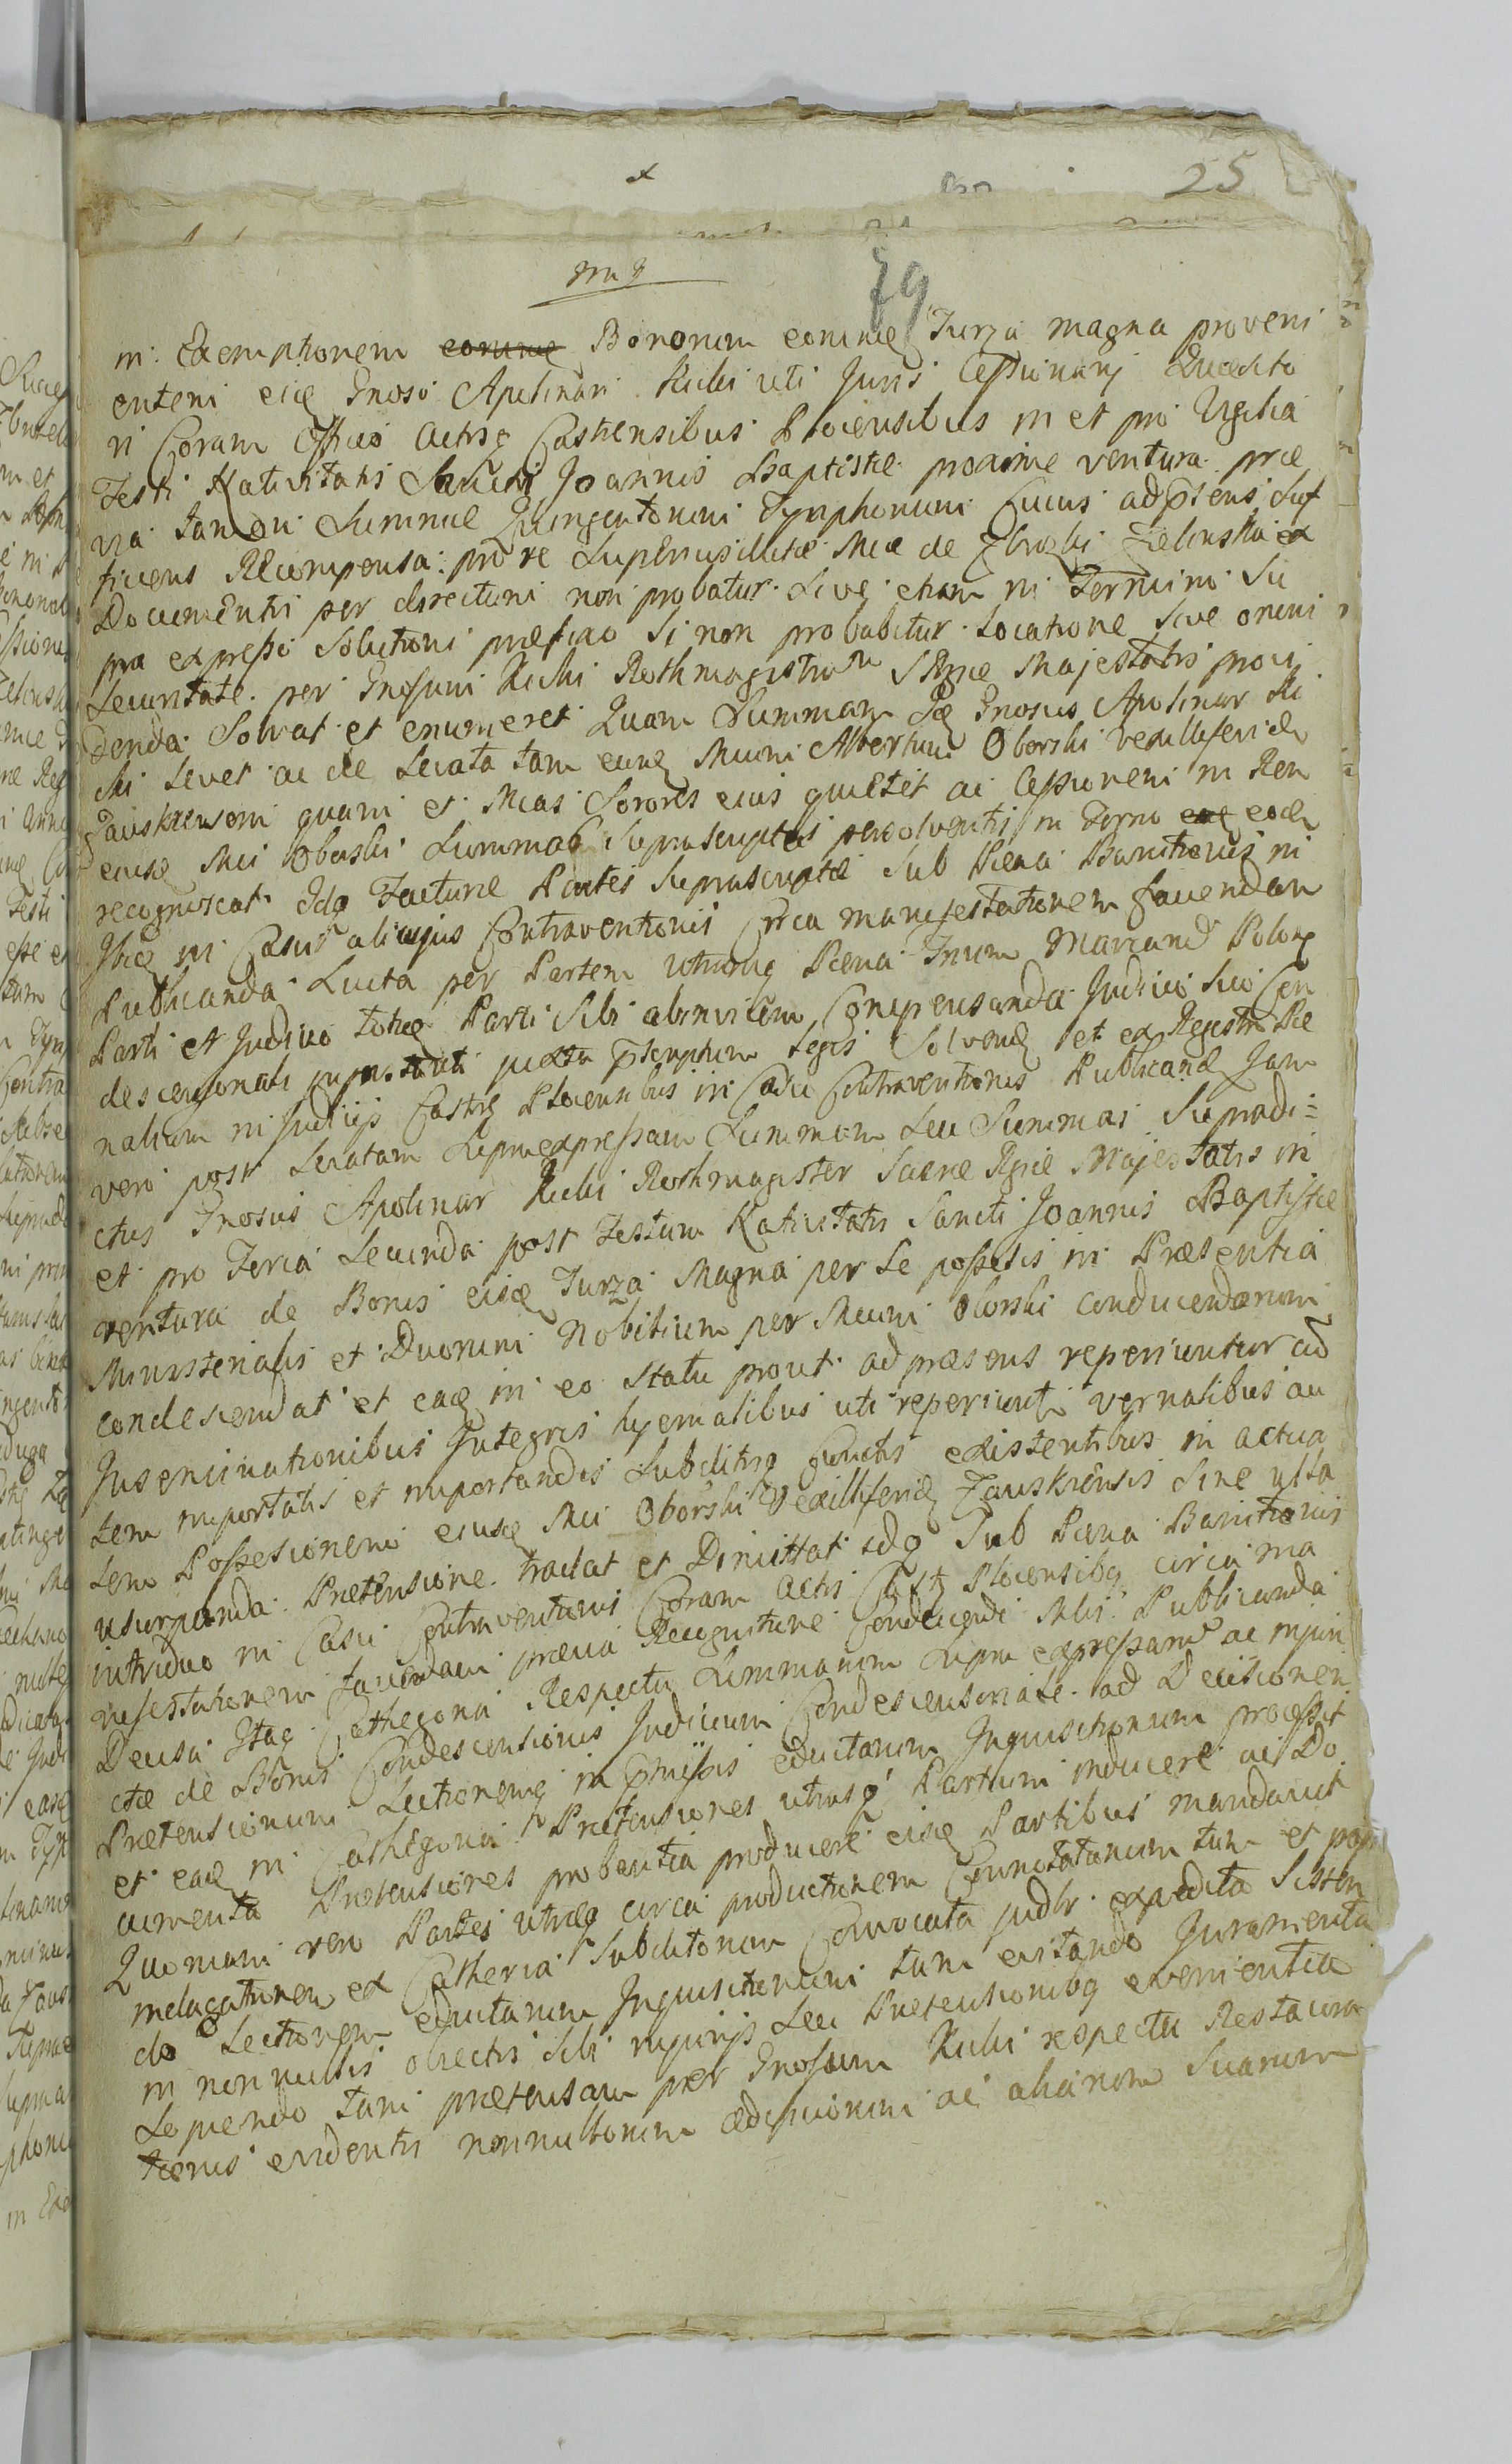 25
79
in Exemptionem eorund Bonorum eorund Turza magna proveni
entem eid Gnoso Apolinari Kicki uti Juris Cessionarij Quaesito
ri Coram Officio Actisq Castrensibus Plocensibus in et pro Vigilia
Festi Nativitatis Sancti Joannis Baptistae proxime ventura prae
via tamen Summae Quingentorum Tymphonum Cuius ad praesens Suf
ficiens Recompensa pro re Mcae de Zelinska ex
Documentis per directum non probatur Sive etiam in Termino Su
pra expresso Solutioni praefixo Si non probabitur Locatione Sive omni
Securitate per Gnosum Kicki Rothmagistrum SRgiae Majestatis provi
denda Solvat et enumeret Quam Summam Idem Gnosus Apolinar Ki
cki Levet ac de Levata tam eund Mcum Albertum Oborski vexilliferid
Zauskrensem quam et Mcas Sorores eius quietet ac Cessionem in Rem
eiusd Mci Oborski Summas Suprascriptas persolventis in Termo eod
recognoscat Idq Facturae Partes Suprascriptae Sub Paena Banitionis in
casu alicujus Contraventionis Circa manifestationem faciendam
Publicanda Luita per Partem utramq Paena Trium Marcarum Polon
Parti et Judicio totid Parti Sibi abinvicem Compensanda Judicio Suo Con
descensionali juxta praescriptum Legis Solvend et ex Regestro Pae
nalium in Judicijs Castr Plocensibus in Casu Contraventionis Publicand Jam
vero post Levatam Supraexpressam Summam Seu Summas Supradi=
ctus Gnosus Apolinar Kicki Rothmagister Sacrae Rgiae Majestatis in
et pro Feria Secunda post Festum Nativitatis Sancti Joannis Baptistae
ventura de Bonis eisd Turza Magna per Se possesis in Praesentia
Ministerialis et Duorum Nobilium per Mcum Oborski conducendorum
condescendat et ead in eo Statu prout ad praesens reperiuntur cum
Inseminationibus Integris hyemalibus uti reperiunt vernalibus au
tem importatis et importandis Subditisq cunctis existentibus in actua
lem Possesionem eiusd Mci Oborski Vexilliferid Zauskrensis Sine ulla
usurpanda Praetensione tradat et Dimittat idq Sub Paena Banitionis
intriduo in Casu Contraventionis Coram Actis Castr Plocensibq circa ma
nifestationem faciendam praevia Recognitione Conducendi Mlis Publicanda
Decisa Itaq Cathegoria Respectu Summarum Supra expressarum ac injun
ctae de Bonis Condescensionis Judicium Condescensoriale ad Decisionem
Praetensionum Lectionemq in praemissis eductarum Inquisitionum processit
et ead in Cathegoria Praetensiones utriusq Partium inducere ac Do
cumenta Praetensiones probantia producere eisd Partibus mandavit
Quoniam vero Partes utraeq circa productionem Connotationum tum et post
indagationem ex Catherva Subditorum Convocata judlr expedita Sisten
do Lectionem eductarum Inquisitionum tum evitando Juramenta
in nonnullis obiectis Sibi injurijs Seu Praetensionibq evenientia
Sopiendo tam praetensam per Gnosum Kicki respectu Restaura
tionis evidentis nonnullorum aedificiorum ac aliarum Suarum